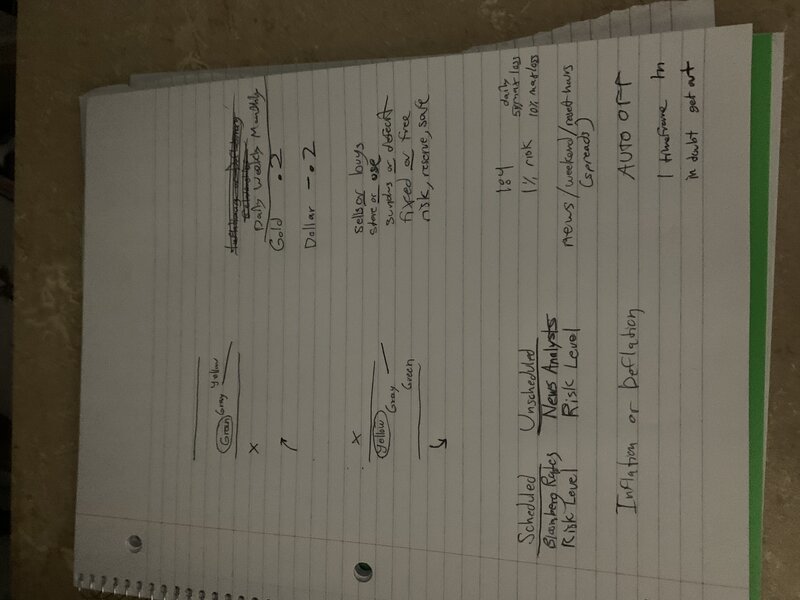 Green Gray Yellow
X
Daily Weekly Monthly
Gold .2
Dollar -.2
X
Yellow Gray
Green
sells or buys
store or use
surplus or defecit
fixed or free
risk, reserve, safe
1:4
daily
5% max loss
1% risk
10% max loss
Scheduled Unscheduled
Bloomberg Rates News Analysts
Risk Level Risk Level
news/weekend/reset hours
(spreads)
Inflation or Deflation
AUTO OFF
1 timeframe
in doubt get out